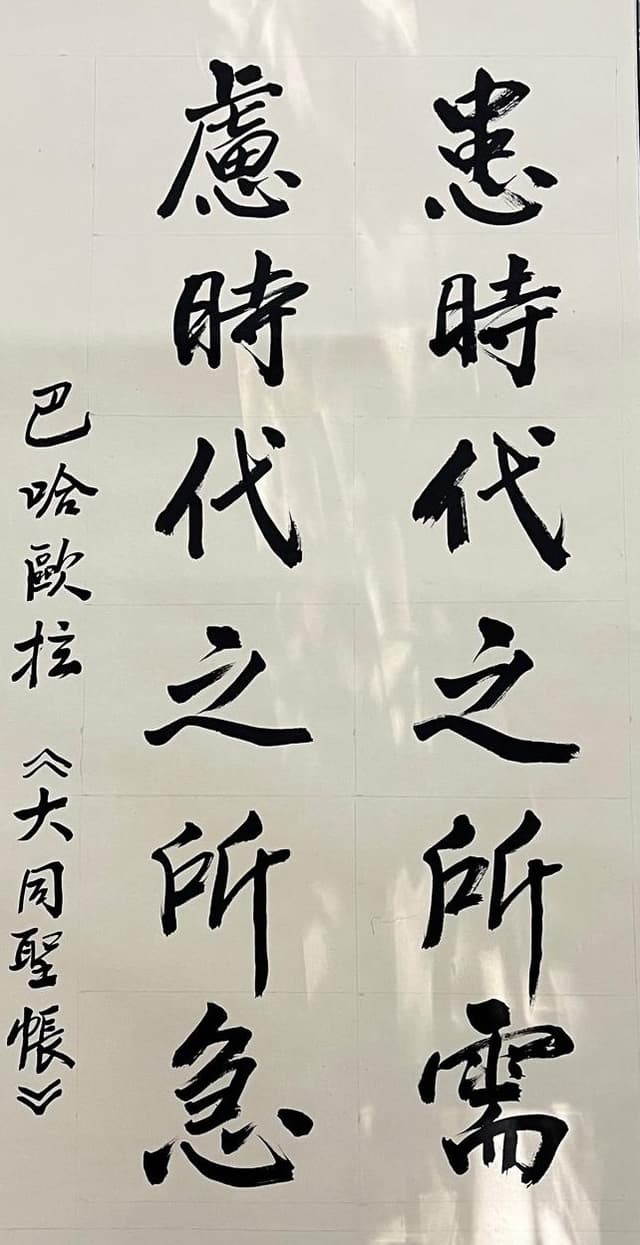 患時代之所需
慮時代之所急
巴哈歐拉 《大同聖帳》